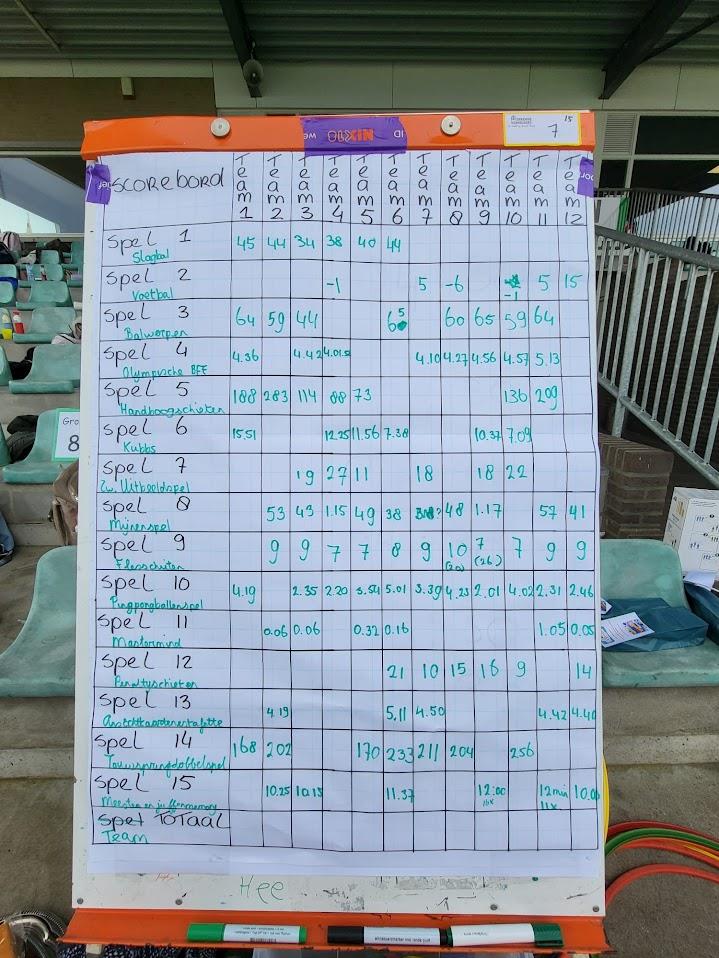 NIXTO
7 15
SCOREBORD Team 1 Team 2 Team 3 Team 4 Team 5 Team 6 Team 7 Team 8 Team 9 Team 10 Team 11 Team 12
Spel 1 45 44 34 38 40 44
Slagbal
Spel 2 -1 5 -6 -1 5 15
Voetbal
Spel 3 64 59 44 65 60 65 59 64
Balwerpen
Spel 4 4.36 4.42 4.01.5 4.10 4.27 4.56 4.57 5.13
Olympische BFF
Spel 5 188 283 114 88 73 136 209
Handboogschieten
Spel 6 15.51 12.25 11.56 7.38 10.37 7.09
Kubbs
Spel 7 19 27 11 18 18 22
Zw. Uitbeeldspel
Spel 8 53 43 1.15 49 38 48 1.17 57 41
Mijnenspel
Spel 9 9 9 7 7 8 9 10 7 7 9 9
Flesschieten (20) (26)
Spel 10 4.19 2.35 2.20 3.54 5.01 3.39 4.23 2.01 4.02 2.31 2.46
Pingpongballenspel
Spel 11 0.06 0.06 0.32 0.16 1.05 0.05
Mastermind
Spel 12 21 10 15 16 9 14
Penaltyschieten
Spel 13 4.19 5.11 4.50 4.42 4.40
Ansichtkaartenestafette
Spel 14 168 202 170 233 211 204 256
Touwspringdobbelspel
Spel 15 10.25 10.15 11.37 12:00 12min 10.06
Meester en juffenmemory 16x 11x
Spel TOTAAL
Team
Hee
Gro
8